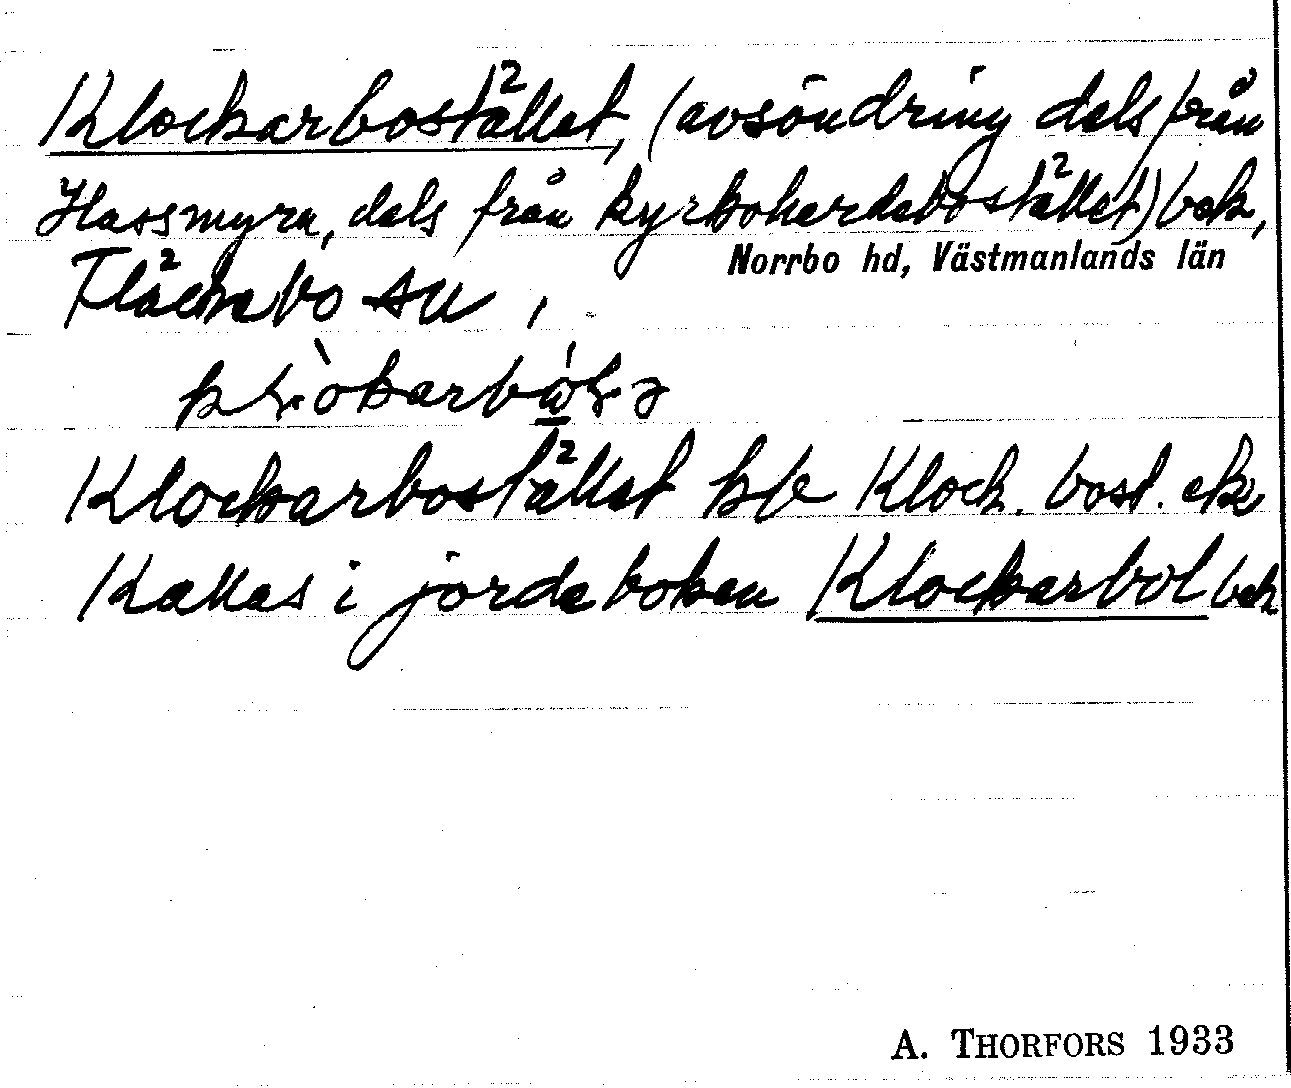 Klockarbostället, (avsöndring dels från
Hassmyra, dels från kyrkoherdebostället) bek,
Norrbo hd, Västmanlands län
Fläckebo sn,
Klockarbostället Klock. bost. ek
Kallas i jordeboken Klockarbol bek
A. THORFORS 1933